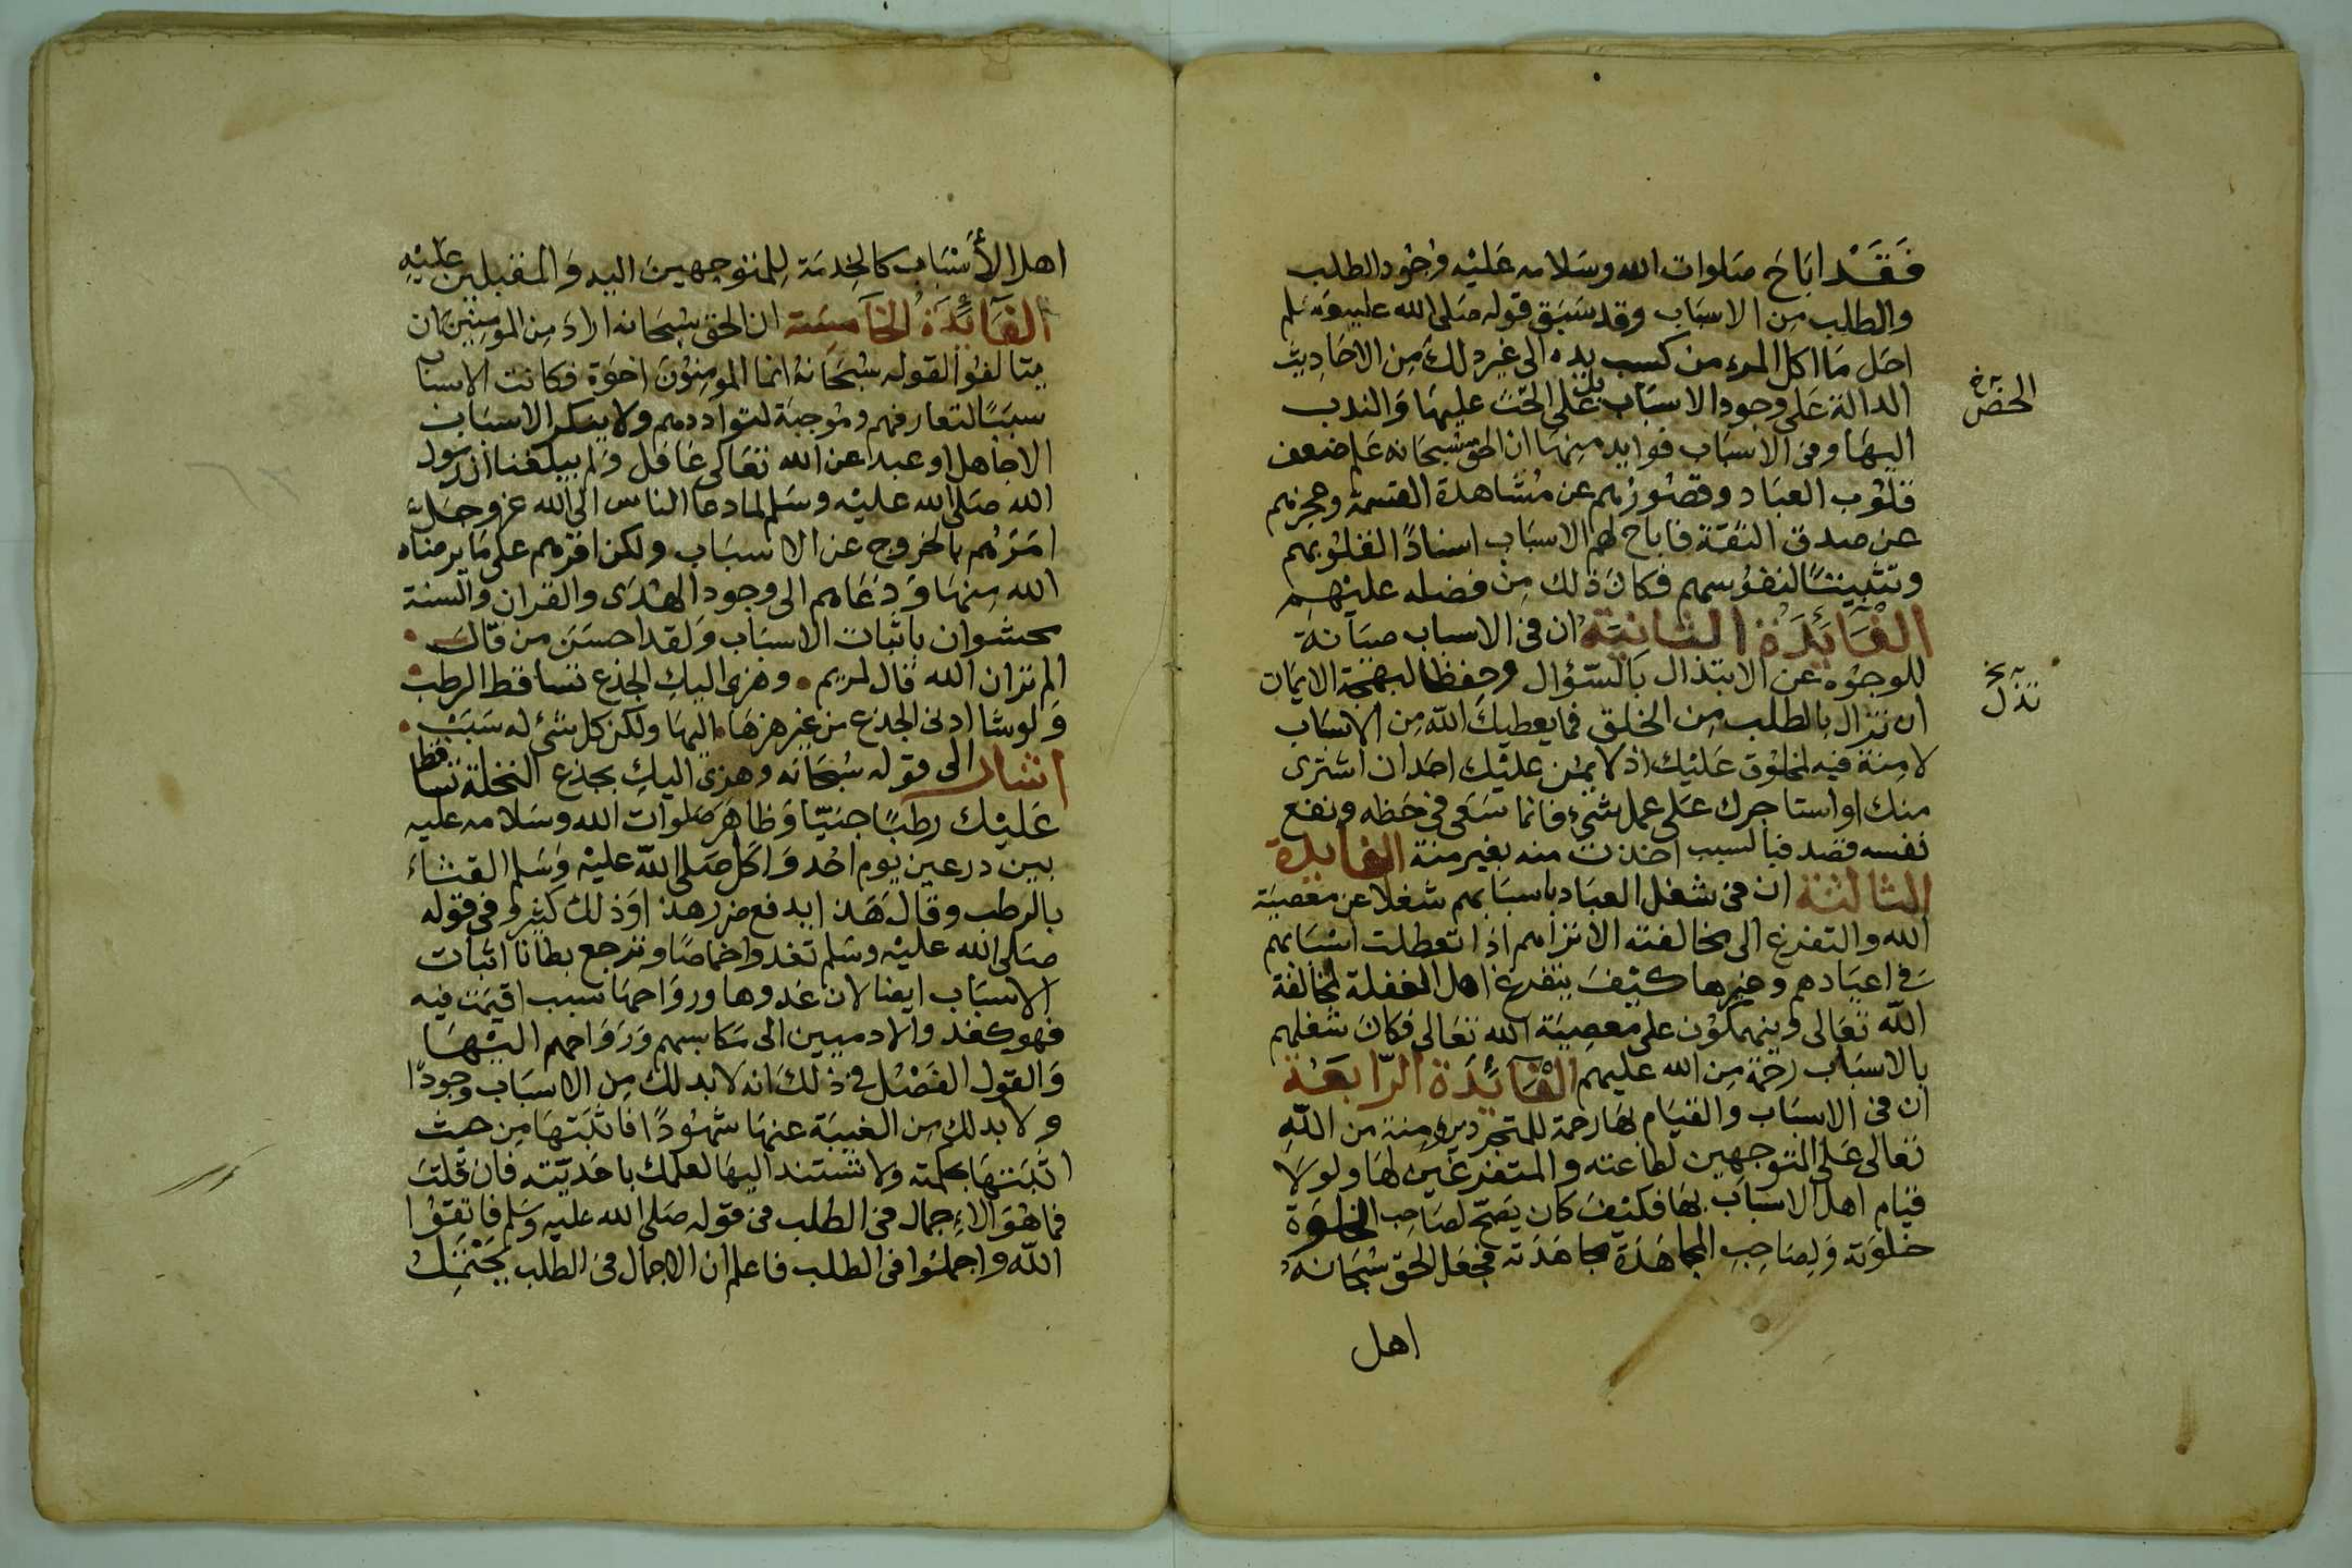 فقد اباح صلوات الله وسلامه عليه وجود الطلب
والطلب من الاسباب وقد سبق قوله صلى الله عليه وسلم
احل ما اكل المرء من كسب يده الى غير ذلك من الاحاديث
الدالة على وجود الاسباب بل على الحث عليها والندب
الحض خ
اليها وفى الاسباب فوايد منها ان الحق سبحانه علم ضعف
قلوب العباد وقصورهم عن مشاهدة القسمة وعجزهم
عن صدق الثقة فاباح لهم الاسباب اسنادًا لقلوبهم
وتثبيتًا لنفوسهم فكان ذلك من فضله عليهم
الفائدة الثانية ان فى الاسباب صيانة
للوجوه عن الابتذال بالسؤال وحفظا لبهجة الايمان
تذل خ
ان تزال بالطلب من الخلق فما يعطيك الله من الاسباب
لا منة فيه لمخلوق عليك اذ لا يمن عليك احد ان اشترى
منك او استاجرك على عمل شيء فانما سعى فى حظه ونفع
نفسه قصد فبالسبب اخذت منه بغير منة الفايدة
الثالثة ان فى شغل العباد باسبابهم شغلا عن معصية
الله والتفرغ الى مخالفته الا تراهم اذا تعطلت اسبابهم
فى اعيادهم وغيرها كيف يتفرغ اهل الغفلة لمخالفة
الله تعالى وينهمكون على معصية الله تعالى فكان شغلهم
بالاسباب رحمة من الله عليهم الفائدة الرابعة
ان فى الاسباب والقيام بها رحمة للمتجردين ومنة من الله
تعالى على المتوجهين لطاعته والمتفرغين لها ولولا
قيام اهل الاسباب بها فكيف كان يصح لصاحب الخلوة
خلوته ولصاحب المجاهدة مجاهدته فجعل الحق سبحانه
اهل
اهل الأسباب كالخدمة للمتوجهين اليه والمقبلين عليه
الفائدة الخامسة ان الحق سبحانه اراد من المومنين ان
يتالفوا لقوله سبحانه انما المومنون اخوة فكانت الاسباب
سببًا لتعارفهم وموجبة لتواددهم ولا ينكر الاسباب
الا جاهل او عبد عن الله تعالى غافل ولم يبلغنا ان رسول
الله صلى الله عليه وسلم لما دعا الناس الى الله عز وجل
امرهم بالخروج عن الاسباب ولكن اقرهم على ما يرضاه
الله منها ودعاهم الى وجود الهدى والقران والسنة
محشوان باثبات الاسباب ولقد احسن من قال
الم تر ان الله قال لمريم • وهزى اليك الجذع تساقط الرطب
ولو شا ادنى الجذع من غير هزها • اليها ولكن كل شئ له سبب
اشار الى قوله سبحانه وهزى اليك بجذع النخلة تساقط
عليك رطبًا جنيّا وظاهر صلوات الله وسلامه عليه
بين درعين يوم احد واكل صلى الله عليه وسلم القثاء
بالرطب وقال هذا يدفع ضرر هذا وذلك كثير وفى قوله
صلى الله عليه وسلم تغدوا خماصًا وترجع بطانا اثبات
الاسباب ايضا لان غدوها ورواحها سبب اقيمت فيه
فهو كغدو الادميين الى مكاسبهم ورواحهم اليها
والقول الفصل فى ذلك انه لا بد لك من الاسباب وجودًا
ولا بد لك من الغيبة عنها شهودًا فاثبتها من حيث
اثبتها بحكمته ولا تستند اليها لعلمك باحديّته فان قلت
فما هو الاجمال فى الطلب فى قوله صلى الله عليه وسلم فاتقوا
الله واجملوا فى الطلب فاعلم ان الاجمال فى الطلب يحتمل